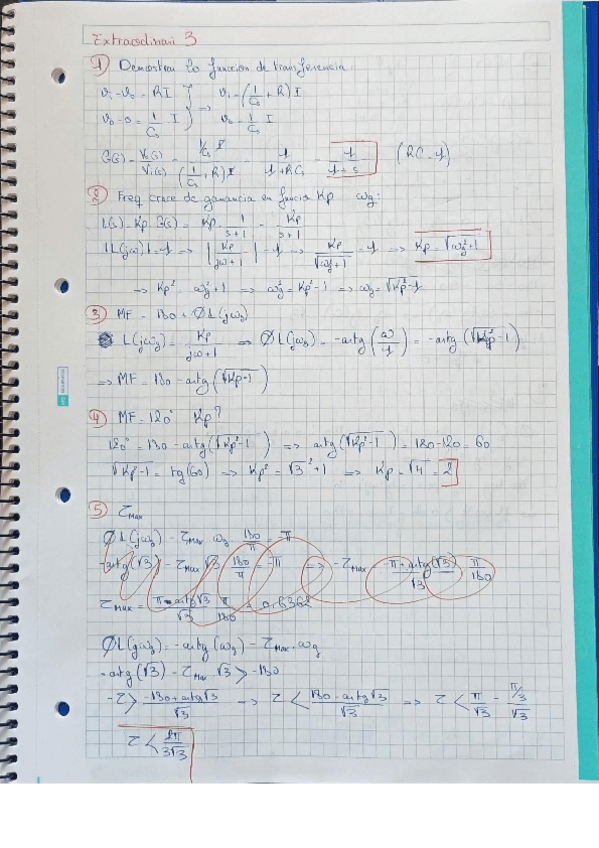 Extraordinari 3
1 Demostrar la funcion de transferencia
Vi - Vo = R I } => Vi = (1/Cs + R) I
Vo - 0 = 1/Cs I } Vo = 1/Cs I
G(s) = Vo(s)/Vi(s) = 1/Cs I / (1/Cs + R) I = 1/1+RCs = 1/1+s (RC=1)
2 Freq cruce de ganancia en funcio Kp ωg:
L(s) = Kp G(s) = Kp 1/s+1 = Kp/s+1
|L(jω)| = 1 => |Kp/jω+1| = 1 => Kp/√ωg²+1 = 1 => Kp = √ωg²+1
=> Kp² = ωg²+1 => ωg² = Kp²-1 => ωg = √Kp²-1
3 MF = 180 + ∅L(jωg)
L(jωg) = Kp/jω+1 => ∅L(jωg) = -artg(ω/1) = -artg(√Kp²-1)
=> MF = 180 - artg(√Kp-1)
4 MF = 120° Kp?
120° = 180 - artg(√Kp²-1) => artg(√Kp²-1) = 180-120 = 60
√Kp-1 = tg(60) => Kp² = √3²+1 => Kp = √4 = 2
5 τmax
∅L(jωg) - τmax ωg 180/π = -π
-artg(√3) - τmax √3 180/π = -π => -τmax = -π+artg(√3)/√3 π/180
τmax = π-artg√3/√3 π/180 = 0,6362
∅L(jωg) = -artg(ωg) - τmax ωg
-artg(√3) - τmax √3 > -180
-τ > -180+artg√3/√3 => τ < 180-artg√3/√3 => τ < π/√3 - π/3/√3
τ < 2π/3√3